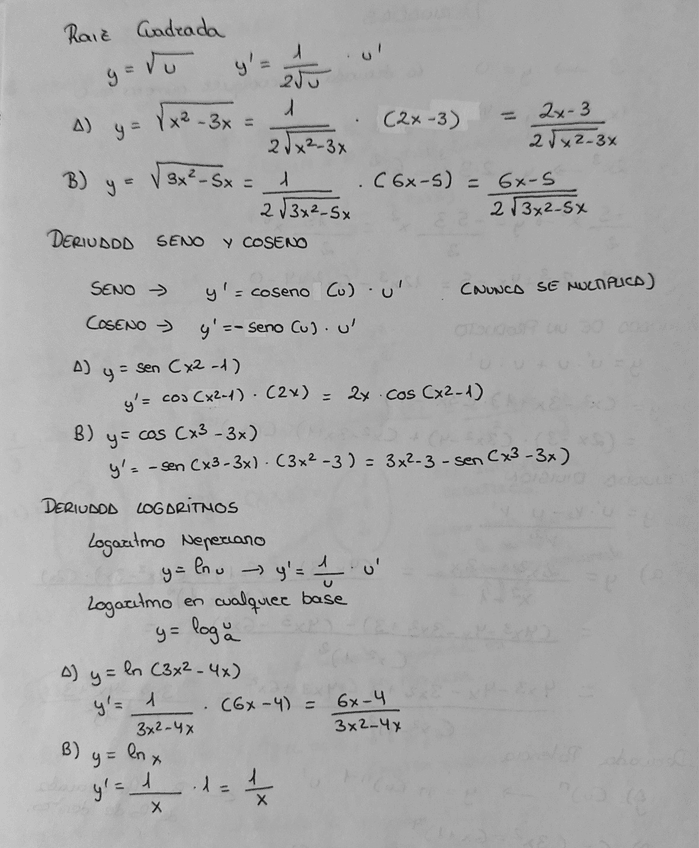 Raiz Cuadrada
y = √u y' = 1/(2√u) · u'
A) y = √(x² - 3x) = 1/(2√(x²-3x)) · (2x-3) = (2x-3)/(2√(x²-3x))
B) y = √(3x²-5x) = 1/(2√(3x²-5x)) · (6x-5) = (6x-5)/(2√(3x²-5x))
DERIVADA SENO Y COSENO
SENO → y' = coseno (u) · u' (NUNCA SE MULTIPLICA)
COSENO → y' = - seno (u) · u'
A) y = sen (x2 -1)
y' = cos (x2-1) · (2x) = 2x · cos (x2-1)
B) y = cos (x3 - 3x)
y' = -sen (x3-3x) · (3x2-3) = 3x2-3 - sen (x3-3x)
DERIVADA LOGARITMOS
Logaritmo Neperiano
y = ln u → y' = 1/u · u'
Logaritmo en cualquier base
y = log u a
A) y = ln (3x2 - 4x)
y' = 1/(3x2-4x) · (6x-4) = (6x-4)/(3x2-4x)
B) y = ln x
y' = 1/x · 1 = 1/x